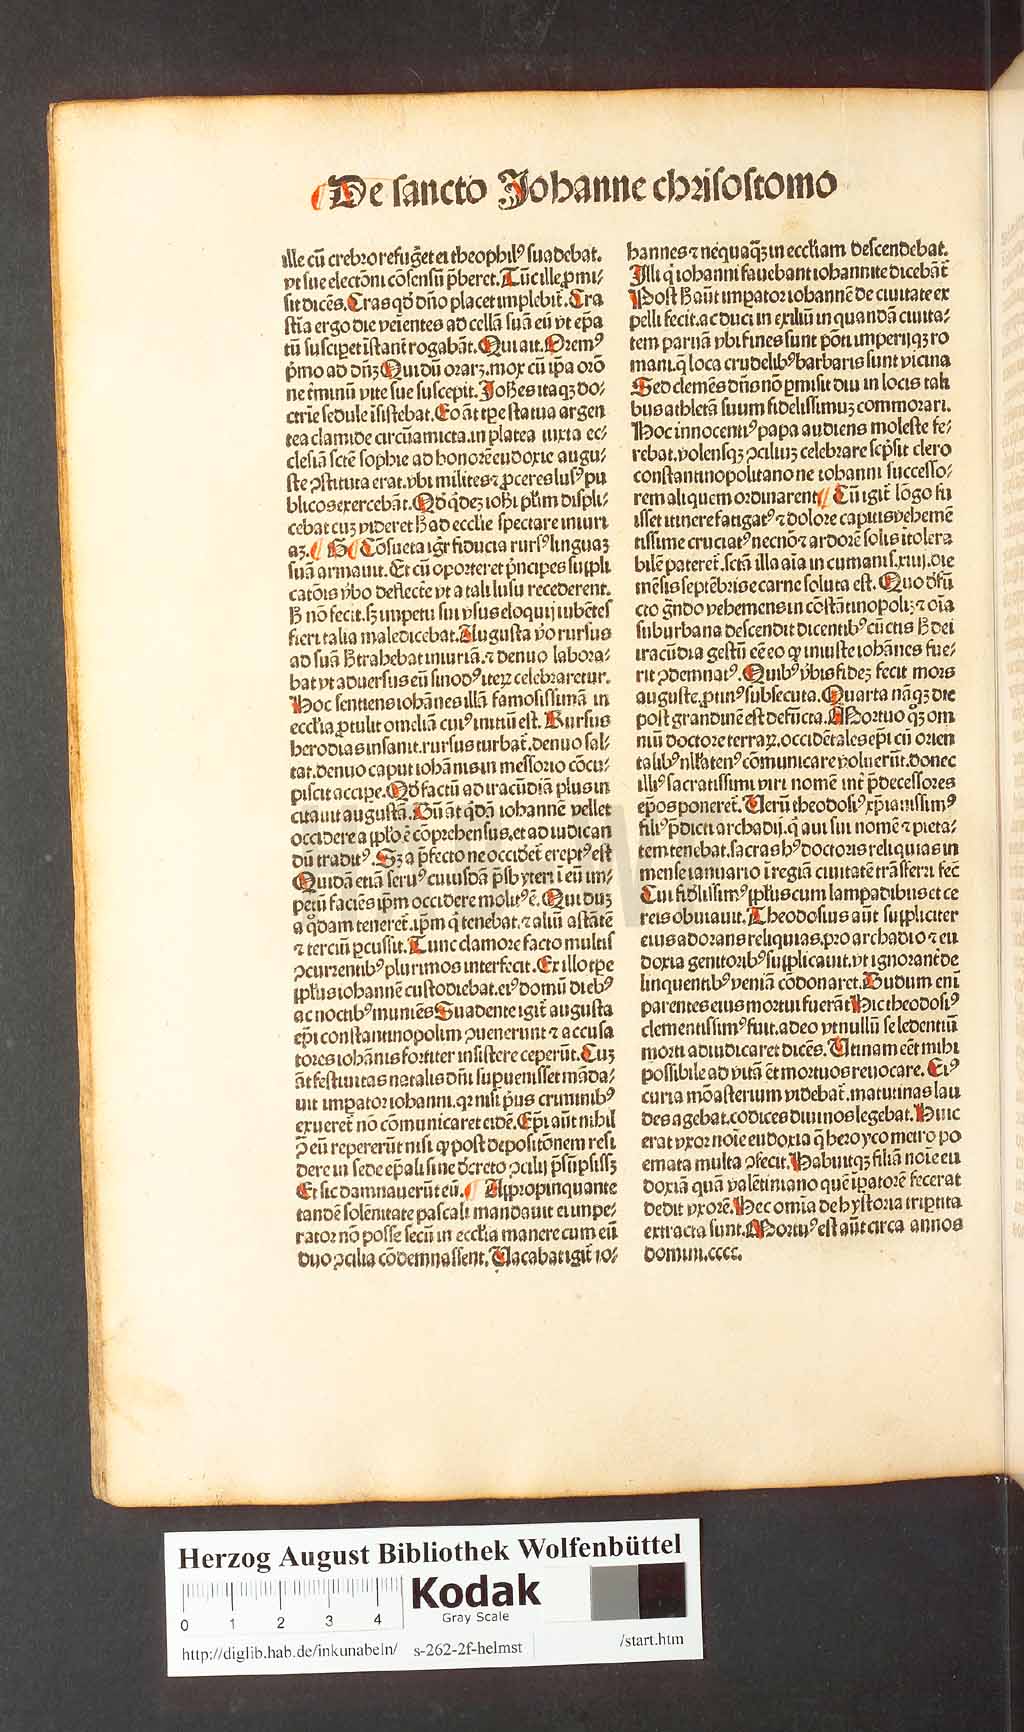 De sancto Johanne chrisostomo
ille cū crebro refuḡet et theophilꝰ suadebat.
vt sue electōni cōsensū p̄beret. Tūc ille ꝓmi⸗
sit dicēs. Cras qđ dn̄o placet implebit̄. Cra
stīa ergo die veīentes ad cellā suā eū vt ep̄a
tū suscip̲et īstant̄ rogabāt. Qui ait. Orem⁹
p̄mo ad dn̄ꝫ Qui dū orarꝫ. mox cū ip̄a orō
ne t̄minū vite sue suscepit. Johēs itaqꝫ do⸗
ctrīe sedule īsistebat. Eo āt tp̄e statua argen
tea clamide circūamicta. in platea iuxta ec⸗
clesiā scte̅ sophie ad honorē eudoxie augu⸗
ste ꝯstituta erat. vbi milites ⁊ ꝓceres lus⁹ pu
blicos exercebāt. Qđ q̇dez iohi̅ pl̅m displi⸗
cebat cuꝫ videret h̄ ad eccl̅ie spectare iniuri
aꝫ. H Cōsueta igr̄ fiducia rurs⁹ linguaꝫ
suā armauit. Et cū oporteret p̄ncipes suppli
catōis v̄bo deflecte̅ vt a tali lusu recederent.
h̄ nō fecit. sꝫ impetu sui vsus eloquij iubētes
fieri talia maledicebat. Augusta v̄o rursus
ad suā h̄ trahebat iniuriā. ⁊ denuo labora⸗
bat vt aduersus eū sinod⁹ iteꝝ celebraretur.
Hoc sentiens iohānes illā famosissimā in
eccl̅ia ꝓtulit omeliā cui⁹ initiū est. Rursus
herodias insanit. rursus turbat̄. denuo sal⸗
tat. denuo caput iohānis in messorio cōcu⸗
piscit accipe̅. Qđ factū ad iracūdiā plus in
citauit augustā. Dū āt q̇dā iohannē vellet
occidere a ppl̅o ē cōprehensus. et ad iudican
dū tradit⁹. Sꝫ a p̄fecto ne occidet̄ erept⁹ est
Quidā etiā seru⁹ cuiusdā p̄sbyteri ī eū im⸗
petū faciēs ip̄m occidere molit⁹ ē. Qui duꝫ
a q̇dam teneret̄. ip̄m q̇ tenebat. ⁊ aliū astātē
⁊ terciū ꝑcussit. Tunc clamore facto multis
ꝯcurrentib⁹ plurimos interfecit. Ex illo tp̄e
ppl̅us iohannē custodiebat. ei⁹ domū dieb⁹
ac noctib⁹ muniēs Suadente igit̄ augusta
ep̄i constantinopolim ꝯuenerunt ⁊ accusa
tores iohānis fortiter insistere ceperūt. Cuꝫ
āt festiuitas natalis dn̄i supuenisset māda⸗
uit imp̲ator iohanni. qꝛ nisi p̄us criminib⁹
exueret̄ nō cōmunicaret eidē. Ep̄i aūt nihil
ꝯ eū repererūt nisi ꝙ post depositōnem resi
dere in sede ep̄ali sine dc̄reto ꝯcilij p̄sūpsissꝫ
Et sic damnauerūt eū. Appropinquante
tandē solēnitate pascali mandauit ei impe⸗
rator nō posse secū in eccl̅ia manere cum eū
duo ꝯcilia cōdemnassent. Uacabat igit̄ io⸗
hannes ⁊ neq̄uaqꝫ in eccl̅iam descendebat.
Illi q̇ iohanni fauebant iohannite dicebāt̄
Post h̄ aūt imp̲ator iohannē de ciuitate ex
pelli fecit. ac duci in exiliū in quandā ciuita⸗
tem paruā vbi fines sunt pōti imperijqꝫ ro
mani. q̄ loca crudelib⁹ barbaris sunt vicina
Sed clemēs dn̄s nō ꝑmisit diu in locis tali
bus athletā suum fidelissimuꝫ commorari.
Hoc innocenti⁹ papa audiens moleste fe⸗
rebat. volensqꝫ ꝯciliuꝫ celebrare scp̄sit clero
constantinopolitano ne iohanni successo⸗
rem aliquem ordinarent. Cū igit̄ lōgo fu
isset itinere fatigat⁹ ⁊ dolore capitis vehemē
tissime cruciat⁹ necnō ⁊ ardorē solis ītolera
bilē pateret̄. sctā illa aīa in cumanis. xiiij. die
mēsis septēbris e carne soluta est. Quo defū
cto gn̄do vehemens in cōstātinopoliꝫ ⁊ oīa
suburbana descendit dicentib⁹ cūctis h̄ dei
iracūdia gestū eē eo ꝙ iniuste iohānes fue⸗
rit ꝯdemnat⁹. Quib⁹ v̄bis fideꝫ fecit mors
auguste. ꝓtin⁹ subsecuta. Quarta nāqꝫ die
post grandinē est defūcta. Mortuo q̇ꝫ om
niū doctore terraꝝ. occidētales ep̄i cū orien
talib⁹ nll̅aten⁹ cōmunicare voluerūt. donec
illi⁹ sacratissimi viri nomē int̄ p̄decessores
ep̄os poneret̄. Uerū theodosi⁹ xp̄ianissim⁹
fili⁹ p̄dicti archadij. q̇ aui sui nomē ⁊ pieta⸗
tem tenebat. sacras h⁹ doctoris reliquias in
mense ianuario ī regiā ciuitatē trāsferri fec̄
Cui fidelissim⁹ ppl̅us cum lampadibus et ce
reis obuiauit. Theodosius aūt suppliciter
eius adorans reliquias. pro archadio ⁊ eu
doxia genitorib⁹ supplicauit. vt ignorant̄ de
linquentib⁹ veniā cōdonaret. Dudum enī
parentes eius mortui fuerāt Hic theodosi⁹
clementissim⁹ fuit. adeo vt nullū se ledentiū
morti adiudicaret dicēs. Utinam eēt mihi
possibile ad vitā ēt mortuos reuocare. Ei⁹
curia mōasterium videbat̄. matutinas lau
des agebat. codices diuinos legebat. Huic
erat vxor noīe eudoxia q̄ heroyco metro po
emata multa ꝯfecit. Habuitqꝫ filiā noīe eu
doxiā quā valētiniano quē īpatorē fecerat
dedit vxorē. Hec omīa de hystoria tripita
extracta sunt. Mortu⁹ est aūt circa annos
domini. cccc.
Herzog August Bibliothek Wolfenbüttel
0 1 2 3 4
Kodak
Gray Scale
http://diglib.hab.de/inkunabeln/ s-262-2f-helmst /start.htm